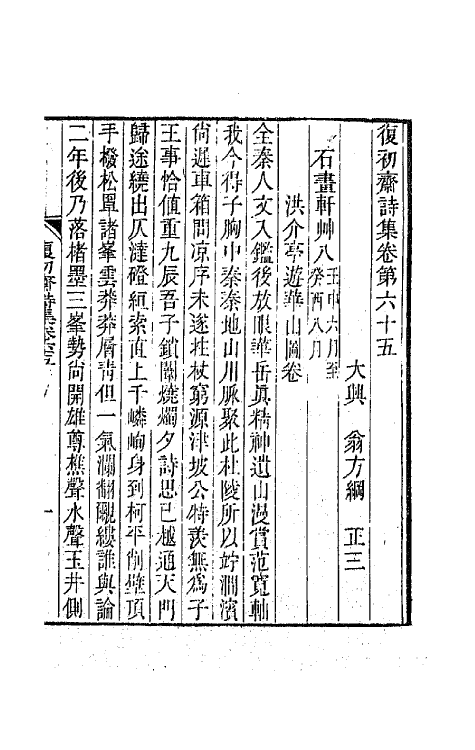 復初齋詩集卷第六十五
大興 翁方綱 正三
石畫軒艸八壬申六月至癸酉八月
洪介亭遊華山圖卷
全秦人文入鑑後放眼華岳眞精神遺山漫賞范寬軸
我今得子胸中秦秦地山川脉聚此杜陵所以竚澗濱
尙遲車箱問凉序未遂拄杖窮源津坡公特羨無爲子
王事恰値重九辰吾子鎖闈燒燭夕詩思已越通天門
歸途繞出仄澾磴絙索直上千嶙峋身到柯平削壁頂
手撥松罩諸峯雲莽莽屑靑但一氣瀾翻覼縷誰與論
二年後乃落楮墨三峯勢尙開雄尊樵聲水聲玉井側
復初齋詩集卷六十五
一